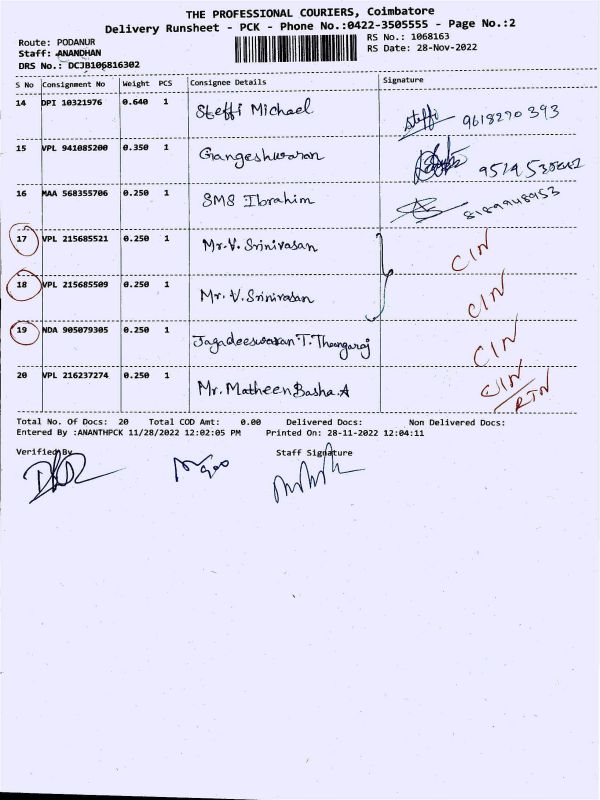 THE PROFESSIONAL COURIERS, Coimbatore
Delivery Runsheet - PCK - Phone No.:0422-3505555 - Page No.:2
Route: PODANUR
RS No.: 1068163
Staff: ANANDHAN
RS Date: 28-Nov-2022
DRS No.: DCJB106816302
S No Consignment No Weight PCS Consignee Details Signature
14 DPI 10321976 0.640 1 Steffi Michael steffi 9618270393
15 VPL 941085200 0.350 1 Gangeshwaran
16 MAA 568355706 0.250 1 SMS Ibrahim 8189948953
17 VPL 215685521 0.250 1 Mr.V. Srinivasan CIN
18 VPL 215685509 0.250 1 Mr. V. Srinivasan CIN
19 NDA 905079305 0.250 1 Jagadeeswaran T. Thangaraj CIN
20 VPL 216237274 0.250 1 Mr. Matheen Basha.A CIN
RTN
Total No. Of Docs: 20 Total COD Amt: 0.00 Delivered Docs: Non Delivered Docs:
Entered By :ANANTHPCK 11/28/2022 12:02:05 PM Printed On: 28-11-2022 12:04:11
Verified By Staff Signature